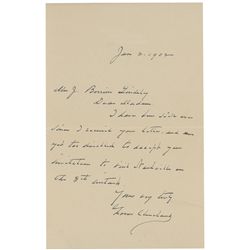 Jan 2. 1902
Mrs J. Berrien Lindsley
Dear Madam
I have been sick ever
since I received your letter, and am
yet too indisposed to accept your
invitation to visit Nashville on
the 8th instant
Yours very truly
Grover Cleveland